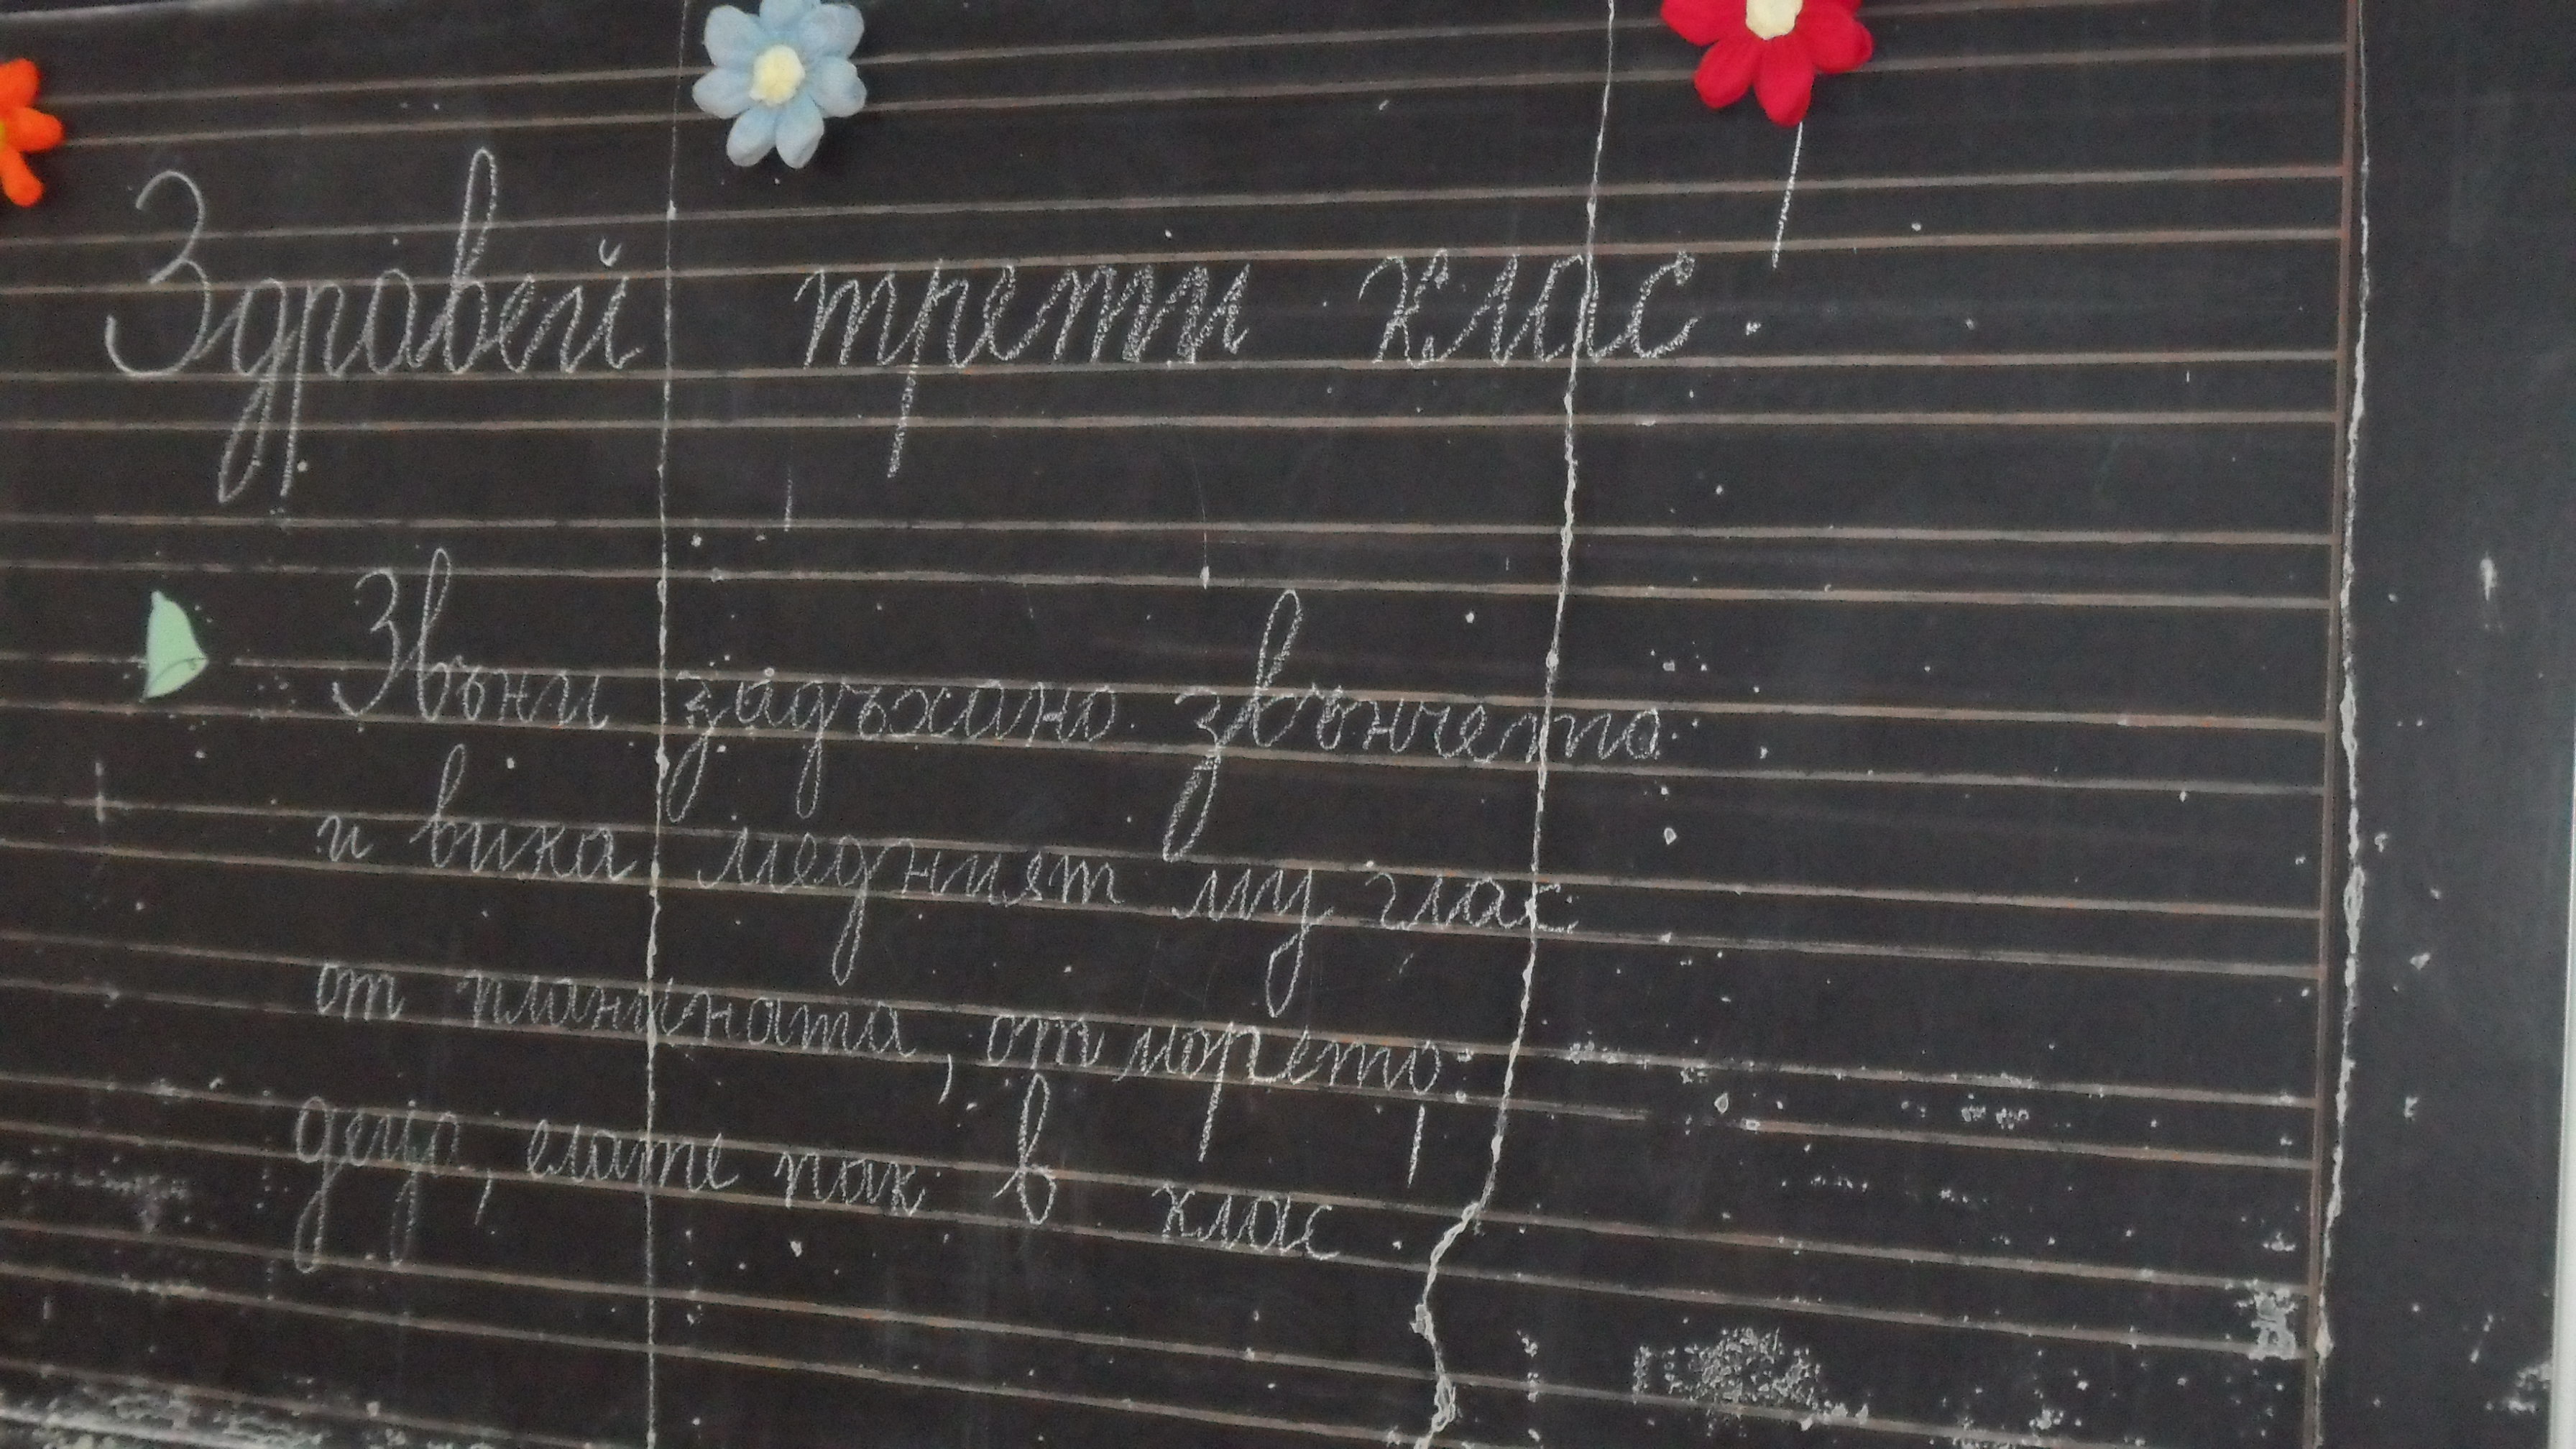 Здравей трети клас!
Звъни задъхано звънчето
и вика медният му глас
от планината, от морето
деца, елате пак в клас!